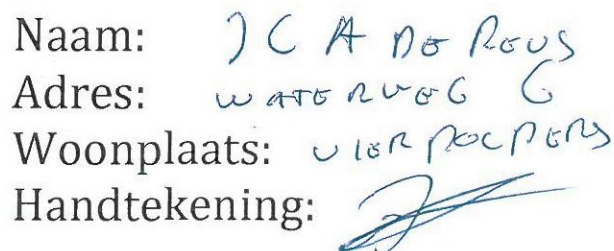 Naam: J C A DE REUS
Adres: WATERWEG 6
Woonplaats: VIERPOLDERS
Handtekening: